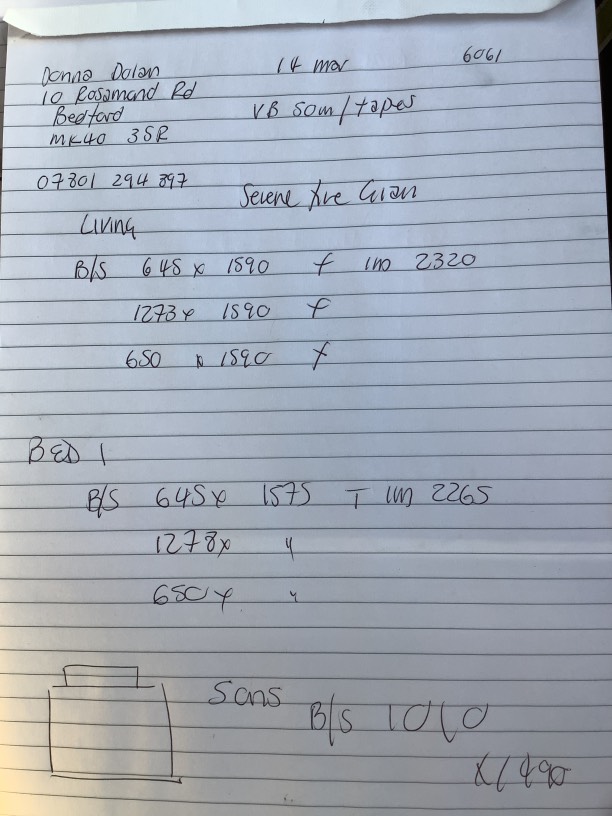 Donna Dolan 14 mar 6061
10 Rosamond Rd
Bedford VB 50m/tapes
MK40 3SR
07801 294 897
Serene
Living
B/S 645 x 1590 f 2320
1273 x 1590 f
650 x 1590 f
BED 1
B/S 645 x 1575 T 2265
1278 x "
650 x "
Sons B/S 1010
x 1490